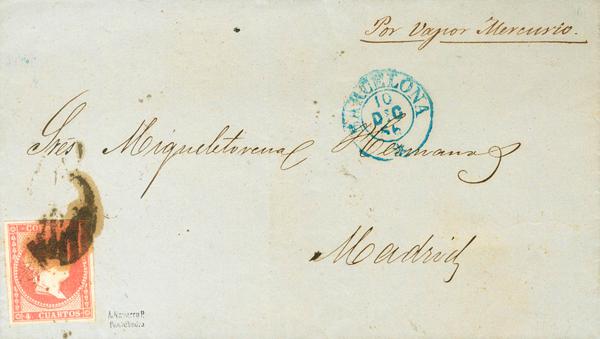 Por Vapor Mercurio.
BARCELONA
10
DIC
56
Sres Migueletorena Hermanos
Madrid
CO
4 CUARTOS
A. Navarro P.